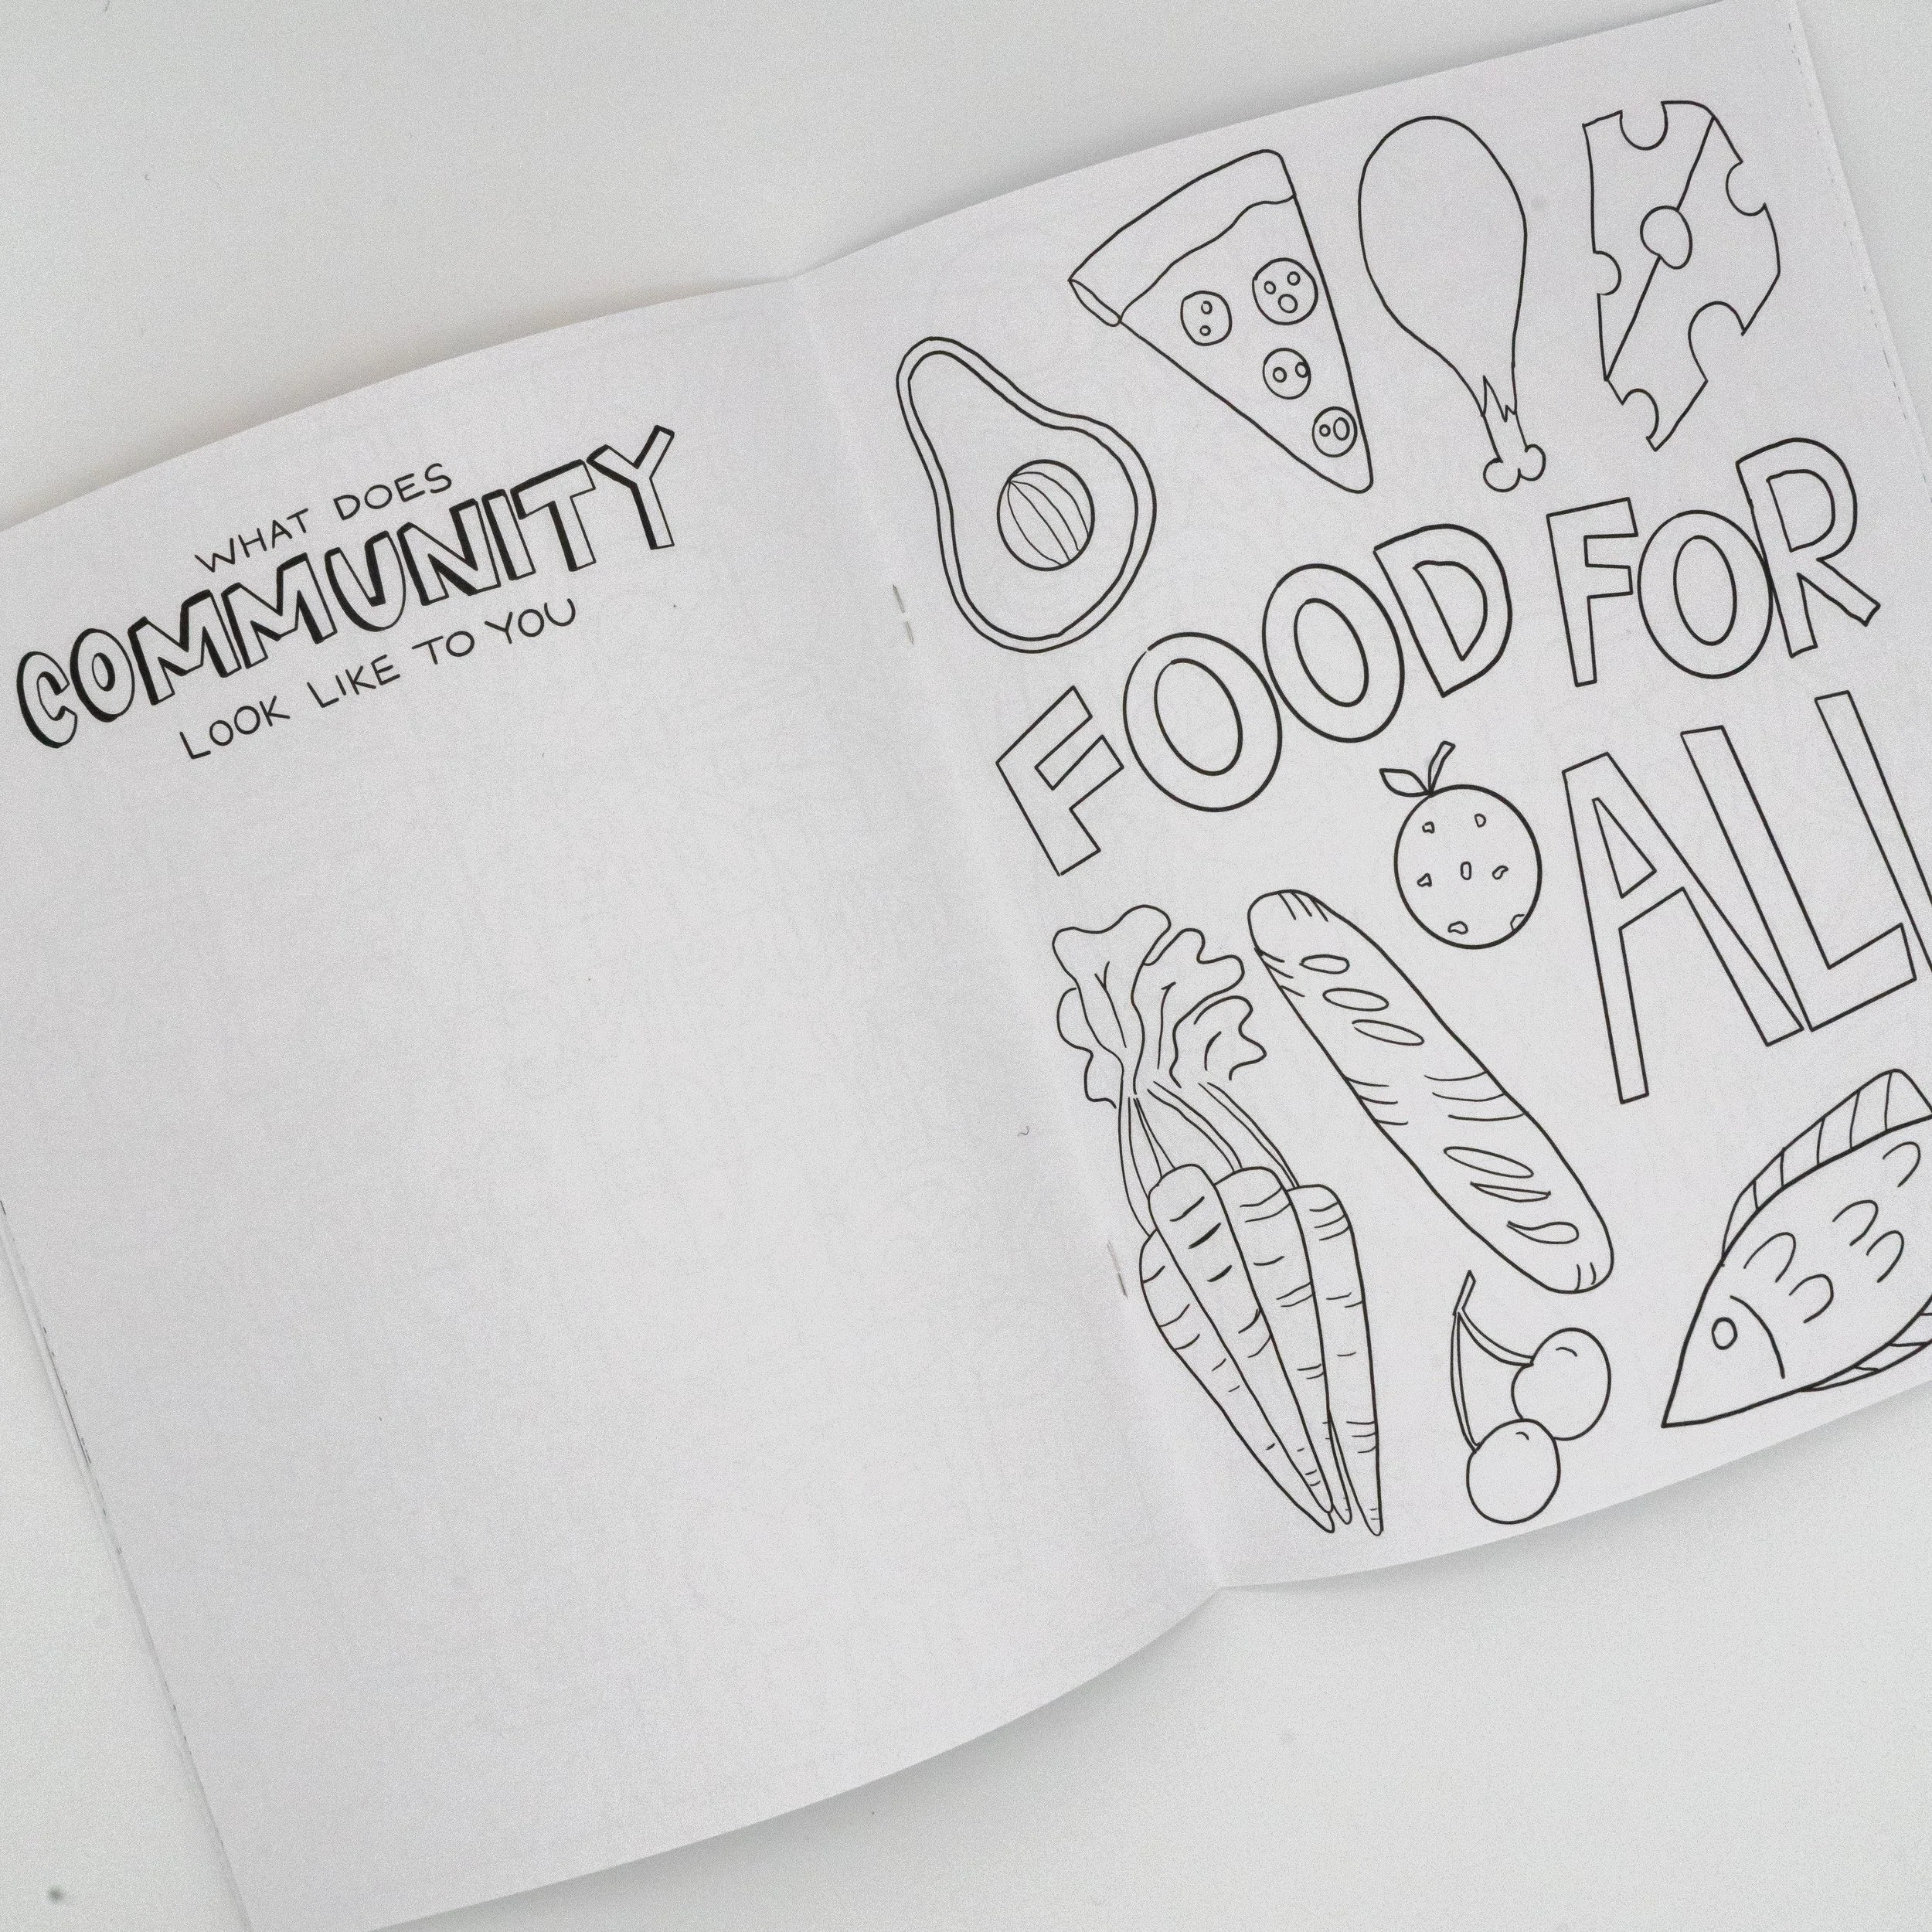 WHAT DOES
COMMUNITY
LOOK LIKE TO YOU
FOOD FOR
ALL